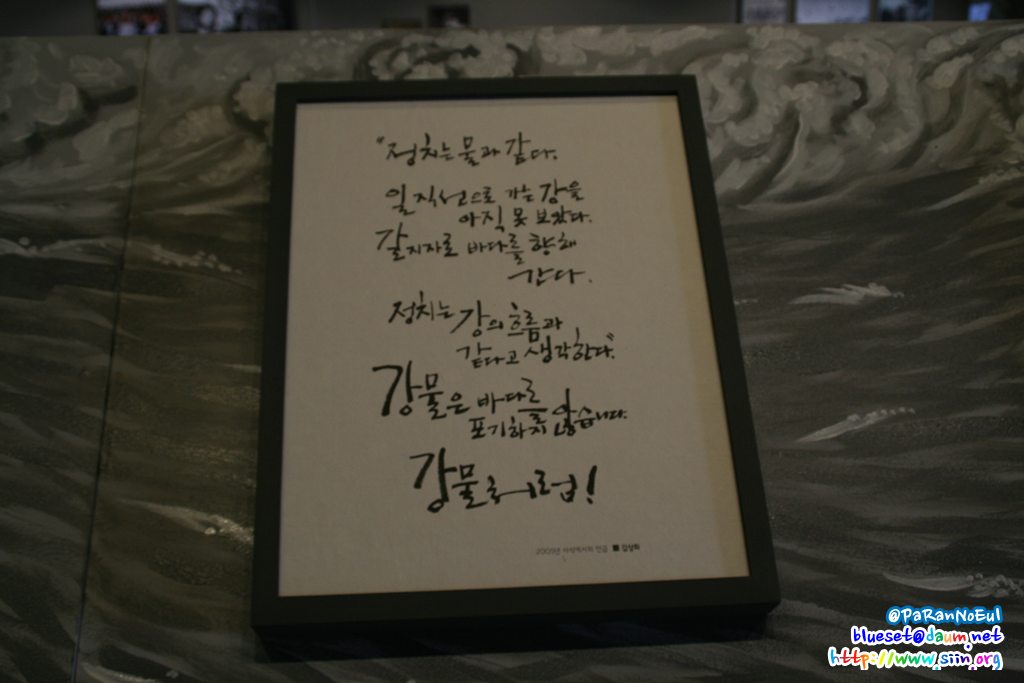 "정치는 물과 같다.
일직선으로 가는 강을
아직 못 보았다.
갈지자로 바다를 향해
간다.
정치는 강의 흐름과
같다고 생각한다."
강물은 바다를
포기하지 않습니다.
강물처럼!
2009년 김상화
@PaRanNoEul
blueset@daum.net
http://www.siin.org